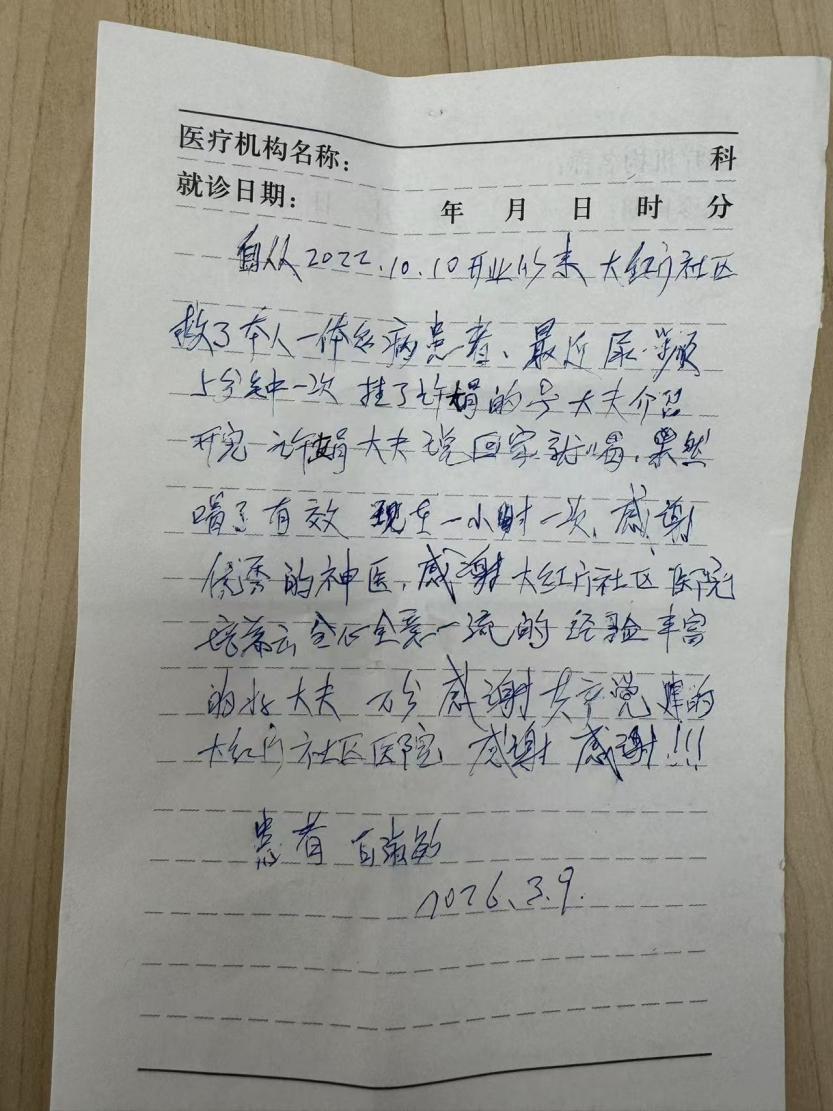 医疗机构名称： 科
就诊日期： 年 月 日 时 分
自从2022.10.10开业以来 大红门社区
救了本人一体多病患者、最近尿频
5分钟一次 挂了许娟的号大夫介绍
开完 许娟大夫说回家就喝、果然
喝了有效 现在一小时一次、感谢
优秀的神医、感谢大红门社区医院
培养出全心全意一流的经验丰富
的好大夫 万分感谢共产党建的
大红门社区医院 感谢 感谢!!!
患者 淑敏
2026.3.9.